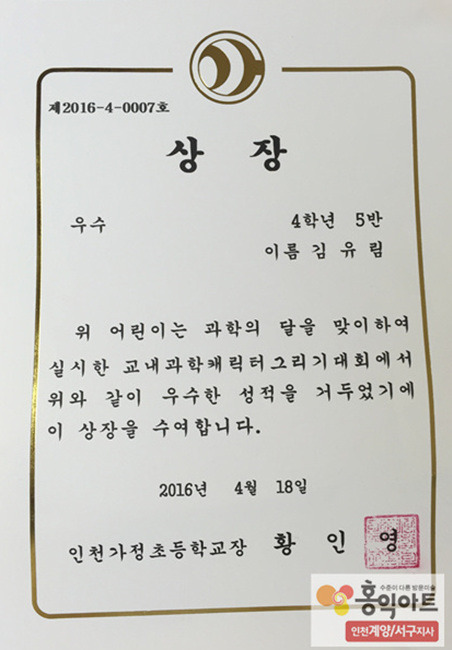 제2016-4-0007호
상 장
우수 4학년 5반
이름 김 유 림
위 어린이는 과학의 달을 맞이하여
실시한 교내과학캐릭터그리기대회에서
위와 같이 우수한 성적을 거두었기에
이 상장을 수여합니다.
2016년 4월 18일
인천가정초등학교장 황 인 영
수준이 다른 방문미술
홍익아트
인천계양/서구지사